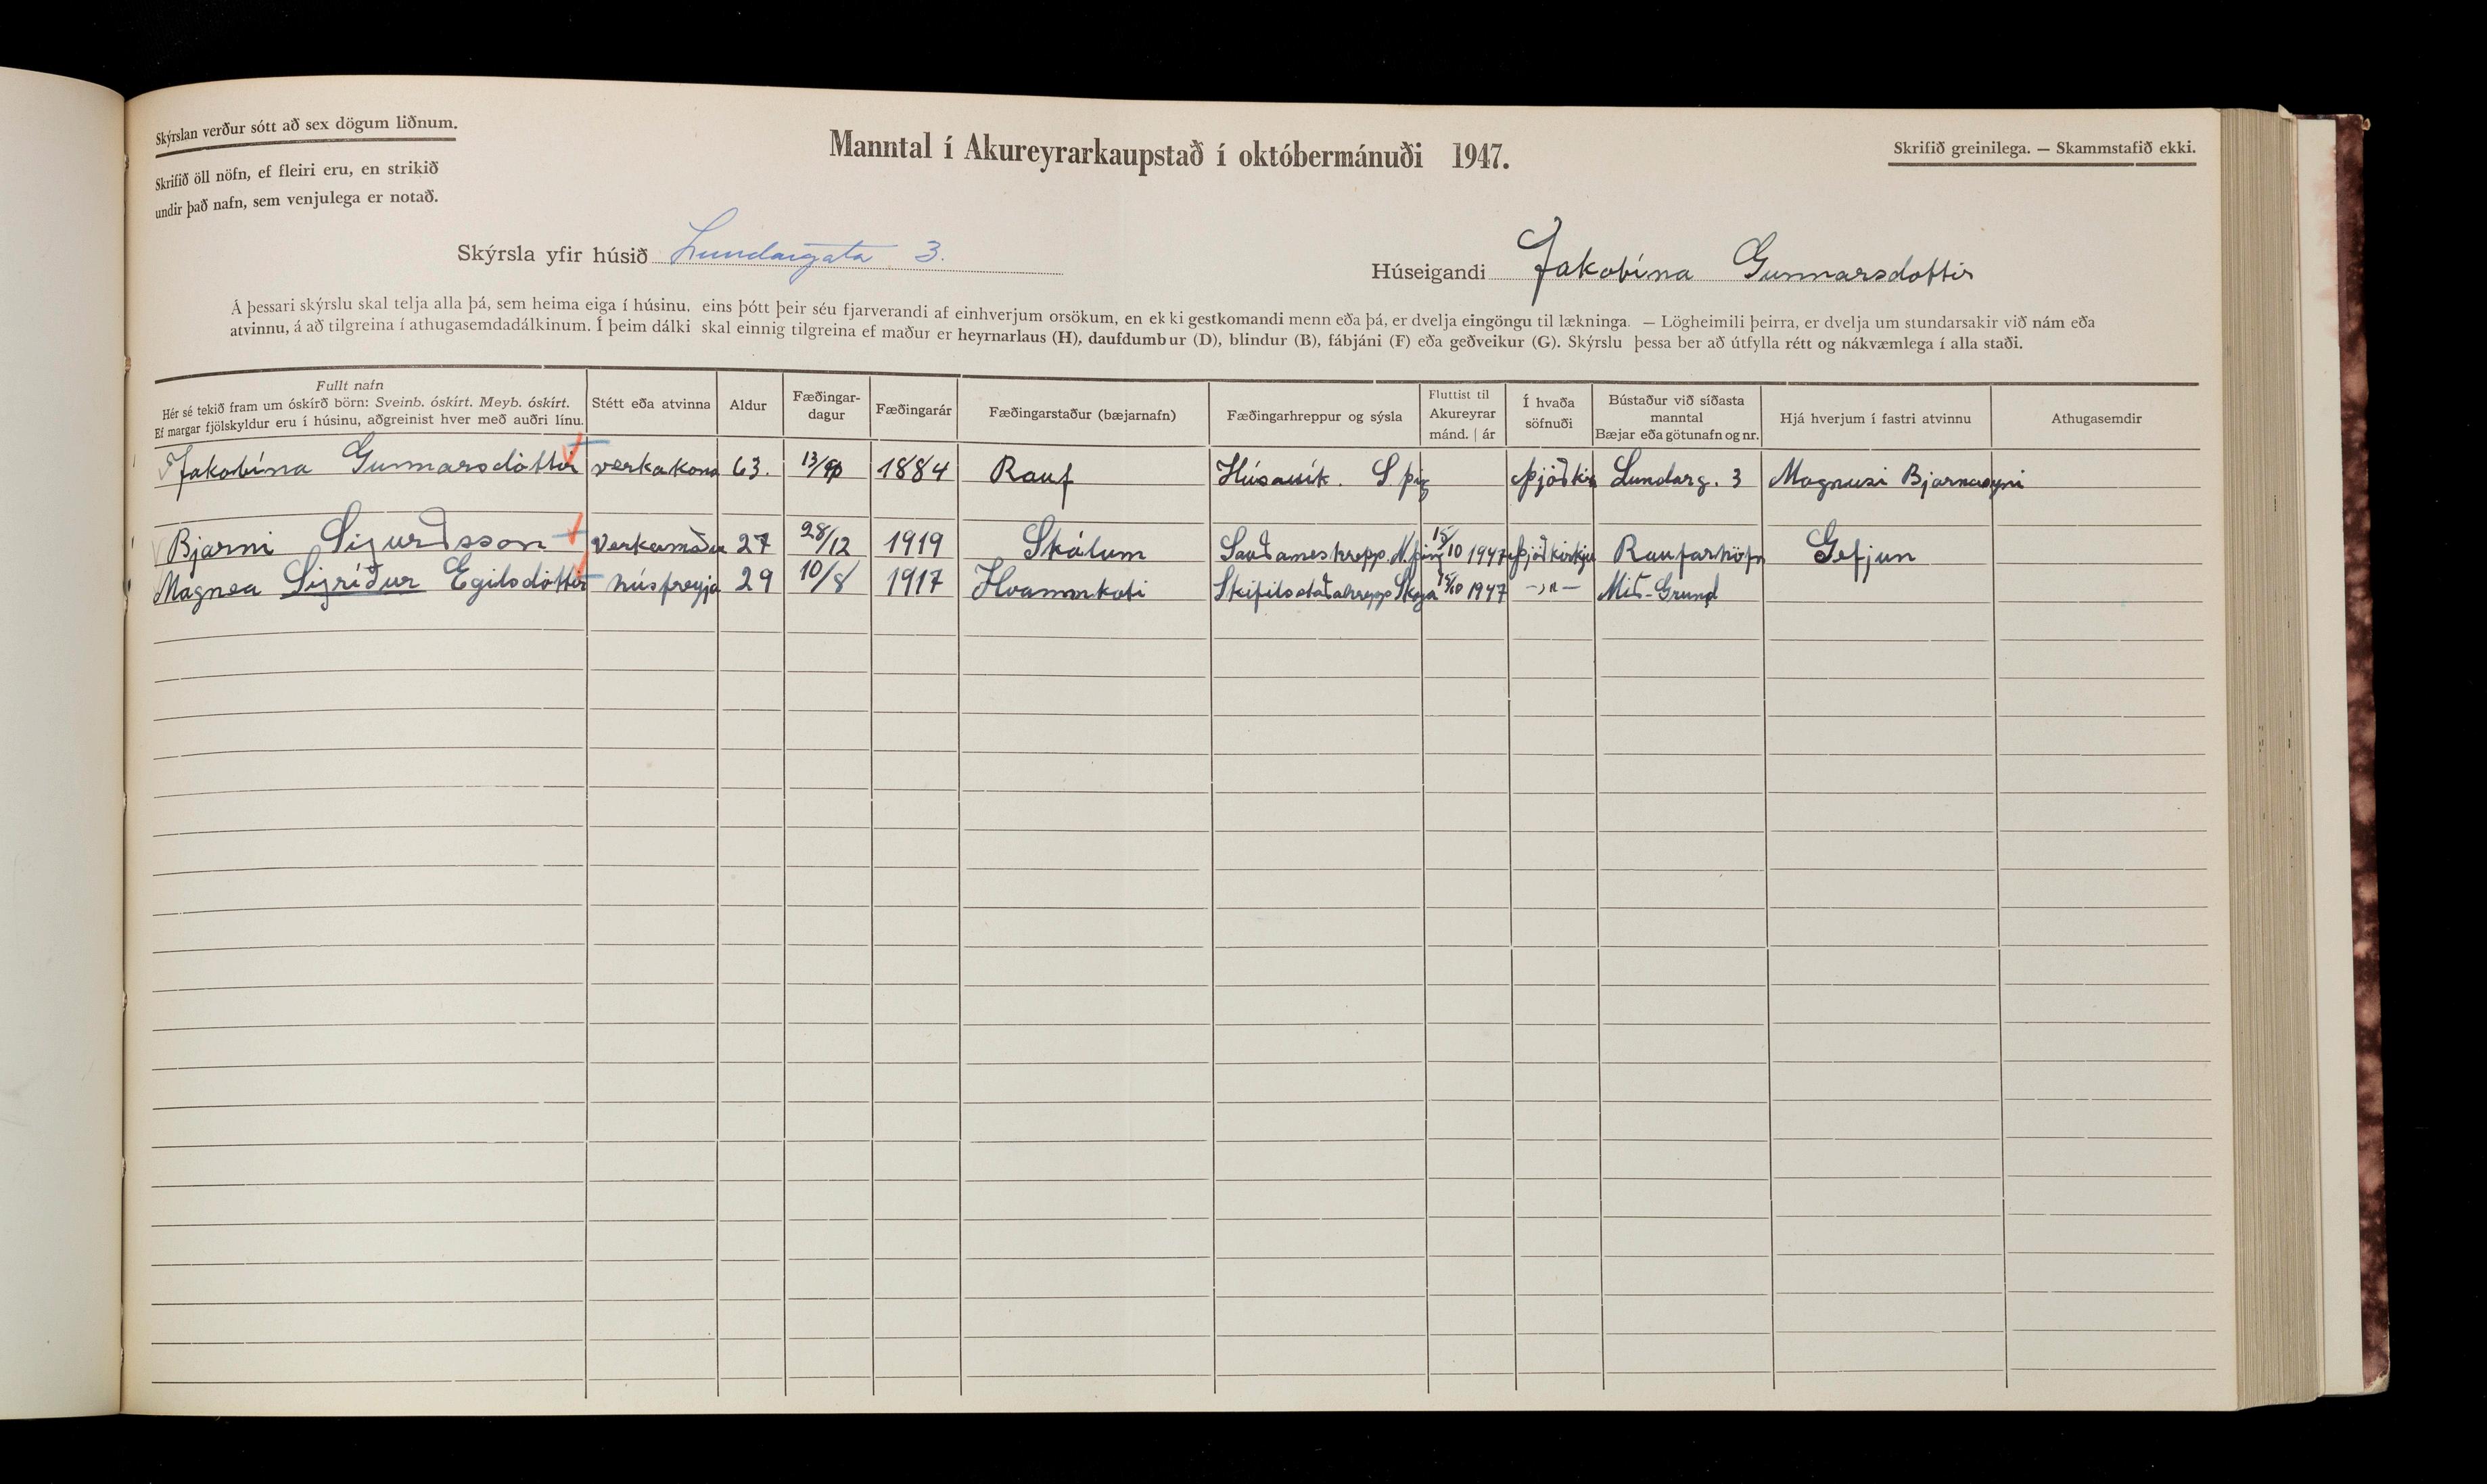 Skýrslan verður sótt að sex dögum liðnum.
Skrifið öll nöfn, ef fleiri eru, en strikið
undir það nafn, sem venjulega er notað.
Manntal í Akureyrarkaupstað í októbermánuði 1947.
Skrifið greinilega. — Skammstafið ekki.
Skýrsla yfir húsið Lundargata 3.
Húseigandi Jakobína Gunnarsdottir
Á þessari skýrslu skal telja alla þá, sem heima eiga í húsinu, eins þótt þeir séu fjarverandi af einhverjum orsökum, en ekki gestkomandi menn eða þá, er dvelja eingöngu til lækninga. — Lögheimili þeirra, er dvelja um stundarsakir við nám eða
atvinnu, á að tilgreina í athugasemdadálkinum. Í þeim dálki skal einnig tilgreina ef maður er heyrnarlaus (H), daufdumbur (D), blindur (B), fábjáni (F) eða geðveikur (G). Skýrslu þessa ber að útfylla rétt og nákvæmlega í alla staði.
Fullt nafn
Hér sé tekið fram um óskírð börn: Sveinb. óskírt. Meyb. óskírt.
Ef margar fjölskyldur eru í húsinu, aðgreinist hver með auðri línu.
Stétt eða atvinna
Aldur
Fæðingar-
dagur
Fæðingarár
Fæðingarstaður (bæjarnafn)
Fæðingarhreppur og sýsla
Fluttist til
Akureyrar
mánd. | ár
Í hvaða
söfnuði
Bústaður við síðasta
manntal
Bæjar eða götunafn og nr.
Hjá hverjum í fastri atvinnu
Athugasemdir
Jakobína Gunnarsdóttir verkakona 63. 1884 Rauf Húsavík. S. þing Þjóðkir Lundarg. 3 Magnusi Bjarnasyni
Bjarni Sigurðsson Verkamaður 27 28/12 1919 Skálum Sauðaneshrepp. N þing 15/10 1947 Þjóðkirkju Raufarhöfn Gefjun
Magnea Sigríður Egilsdóttir húsfreyja 29 10/8 1917 Hvammkoti Skefilsstaðahrepp Skaga 15/10 1947 —〃— Mið-Grund